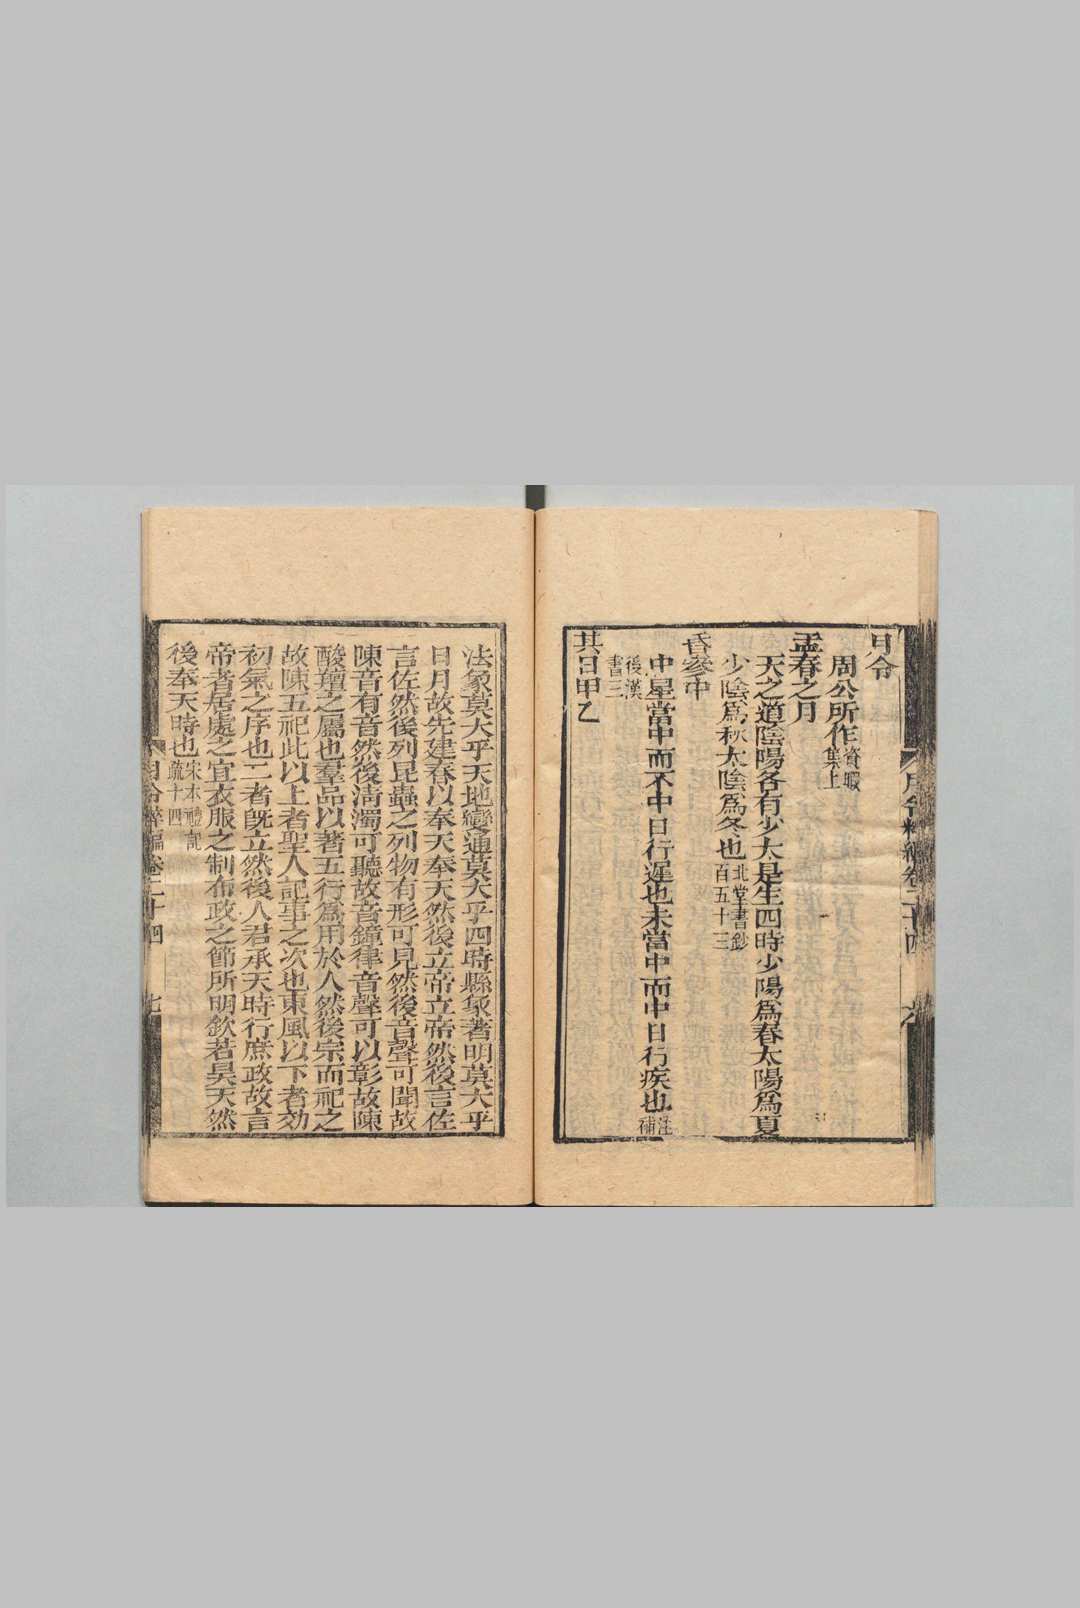 月令
周公所作資暇集上
孟春之月
天之道陰陽各有少太是生四時少陽爲春太陽爲夏
少陰爲秋太陰爲冬也北堂書鈔百五十三
昏參中
中星當中而不中日行遲也未當中而中日行疾也注補
後漢書三
其日甲乙
法象莫大乎天地變通莫大乎四時縣象著明莫大乎
日月故先建春以奉天奉天然後立帝立帝然後言佐
言佐然後列昆蟲之列物有形可見然後音聲可聞故
陳音有音然後清濁可聽故音鐘律音聲可以彰故陳
酸羶之屬也羣品以著五行爲用於人然後宗而祀之
故陳五祀此以上者聖人記事之次也東風以下者効
初氣之序也二者旣立然後人君承天時行庶政故言
帝者居處之宜衣服之制布政之節所明欽若昊天然
後奉天時也宋本禮記疏十四
卷二十四
七